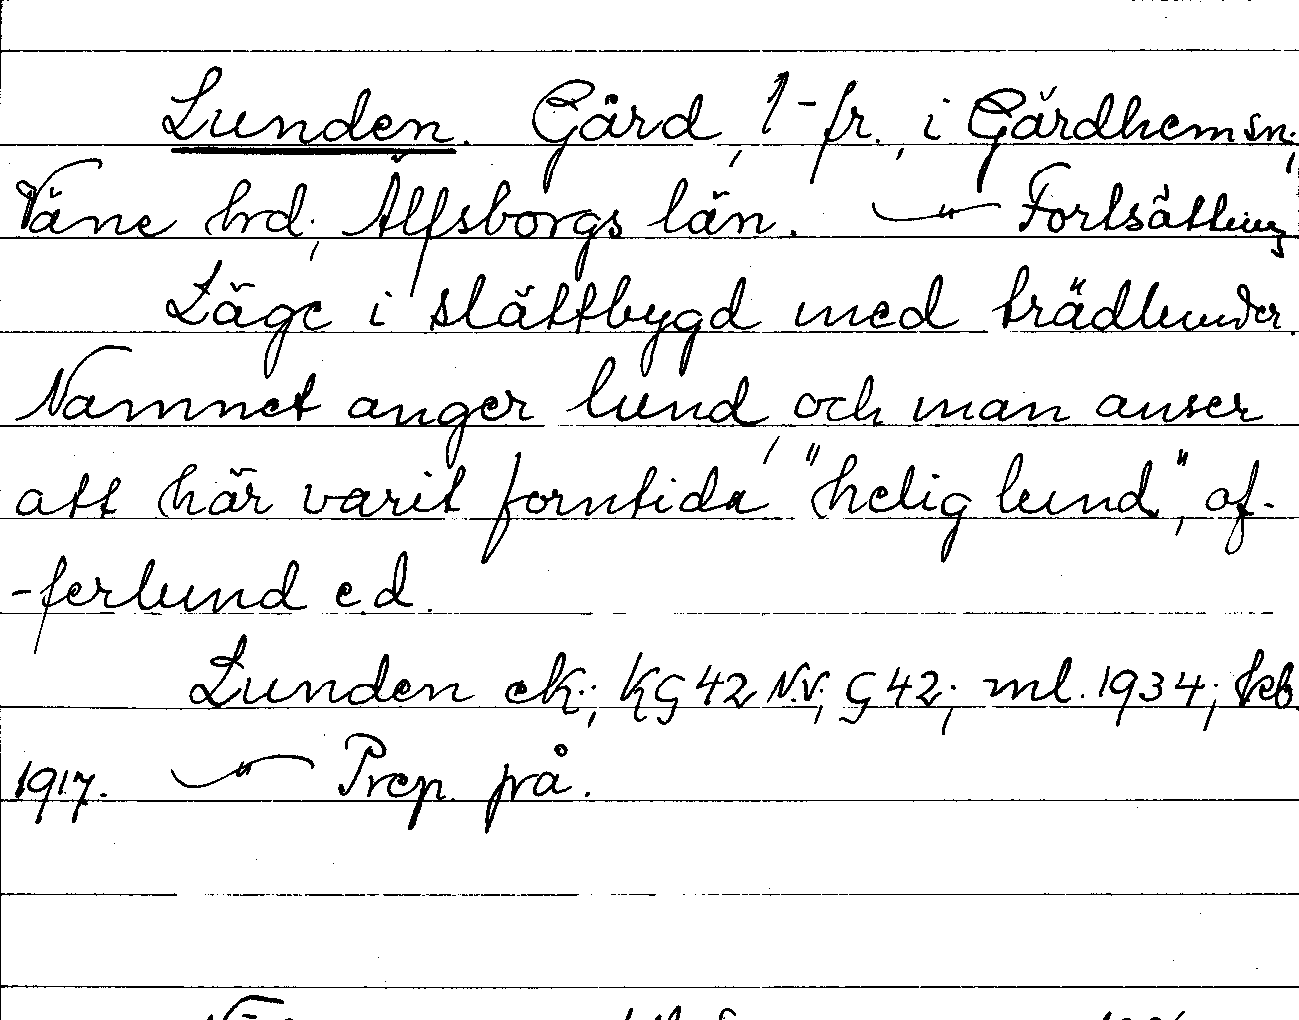 Lunden. Gård, 1-fr., i Gärdhem sn;
Väne hrd; Älfsborgs län. —〃— Fortsättning
Läge i slättbygd med trädlunder.
Namnet anger lund, och man anser
att här varit forntida "helig lund", of-
-ferlund e.d.
Lunden ek.; KG 42 N.V; G 42; ml. 1934; tkb
1917. —〃— Prep. på.